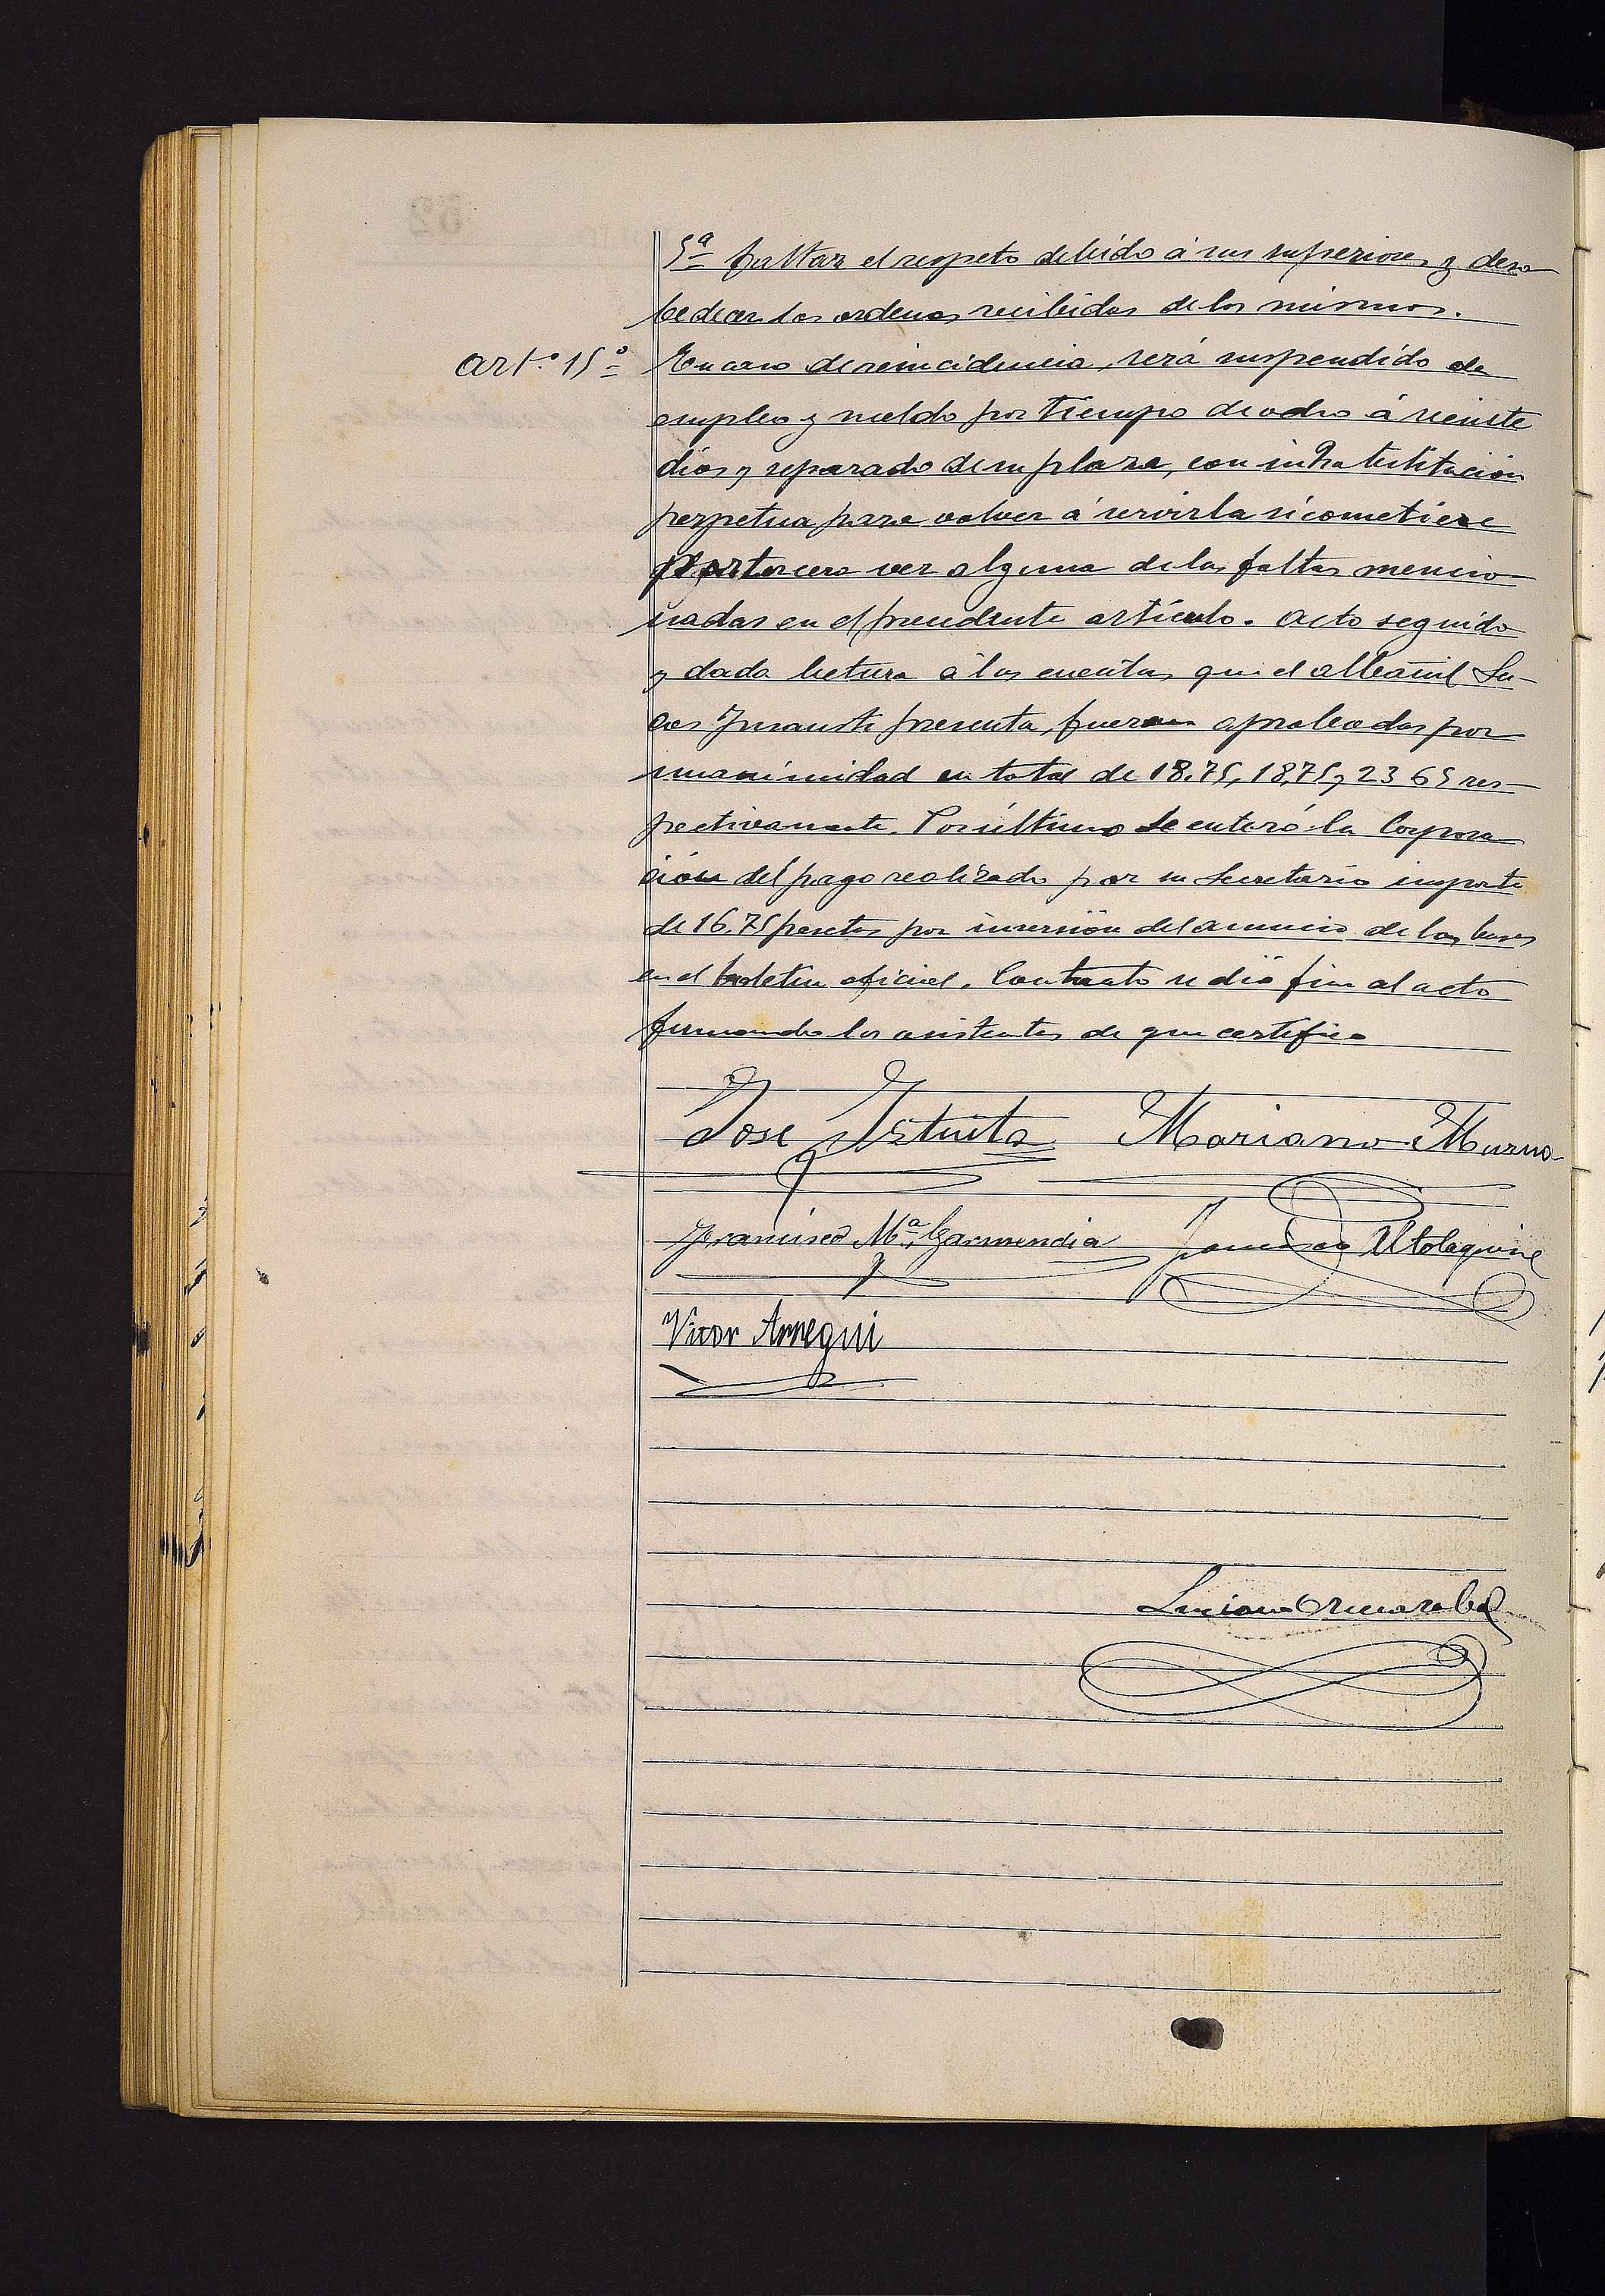 5ª faltar el respeto debido á sus superiores y deso
bedecer las ordenes recibidas de los mismos.
Artº 15º En caso de reincidencia, será suspendido de
empleo y sueldo por tiempo de ocho á veinte
dias y separado de su plaza, con inhabilitación
perpetua para volver á servirla si cometiere
por tercera vez alguna de las faltas mencio
nadas en el precedente artículo. Acto seguido
y dada lectura á las cuentas que el albañil Lu-
cas presenta, fueron aprobadas por
unanimidad en total de 18,75, 18,75 y 23 65 res-
pectivamente. Por último se enteró la Corpora
ción del pago realizado por su Secretario importe
de 16,75 pesetas por inserción del anuncio de las bases
en el boletin oficial. Con tanto se dió fin al acto
firmando los asistentes de que certifico
Jose Mariano Murua
Francisco Mª Garmendia Francisco
Victor Arregui
Luciano